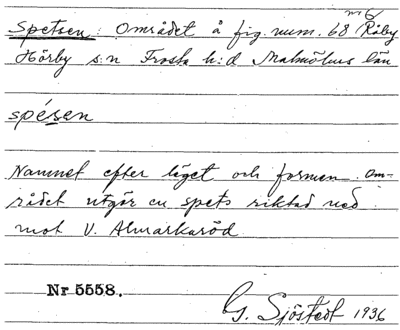 Spetsen: Området å fig. num. 68 Råby n:6
Hörby s:n Frosta h:d Malmöhus län
spésen
Namnet efter läget och formen. Om-
rådet utgör en spets riktad ned
mot V. Almarkaröd.
Nr 5558.
G. Sjöstedt 1936